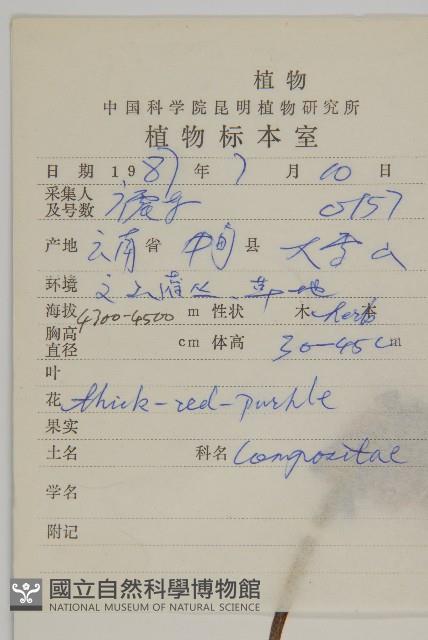 植物
中国科学院昆明植物研究所
植物标本室
日期 1987年 7月 10日
采集人
及号数 0157
产地 云南省 中甸县 大雪山
环境 灌丛、草地
海拔 4300-4500 m 性状 木 herb 本
胸高
直径 cm 体高 30-45cm
叶
花 thick-red-purple
果实
土名 科名 Compositae
学名
附记
國立自然科學博物館
NATIONAL MUSEUM OF NATURAL SCIENCE